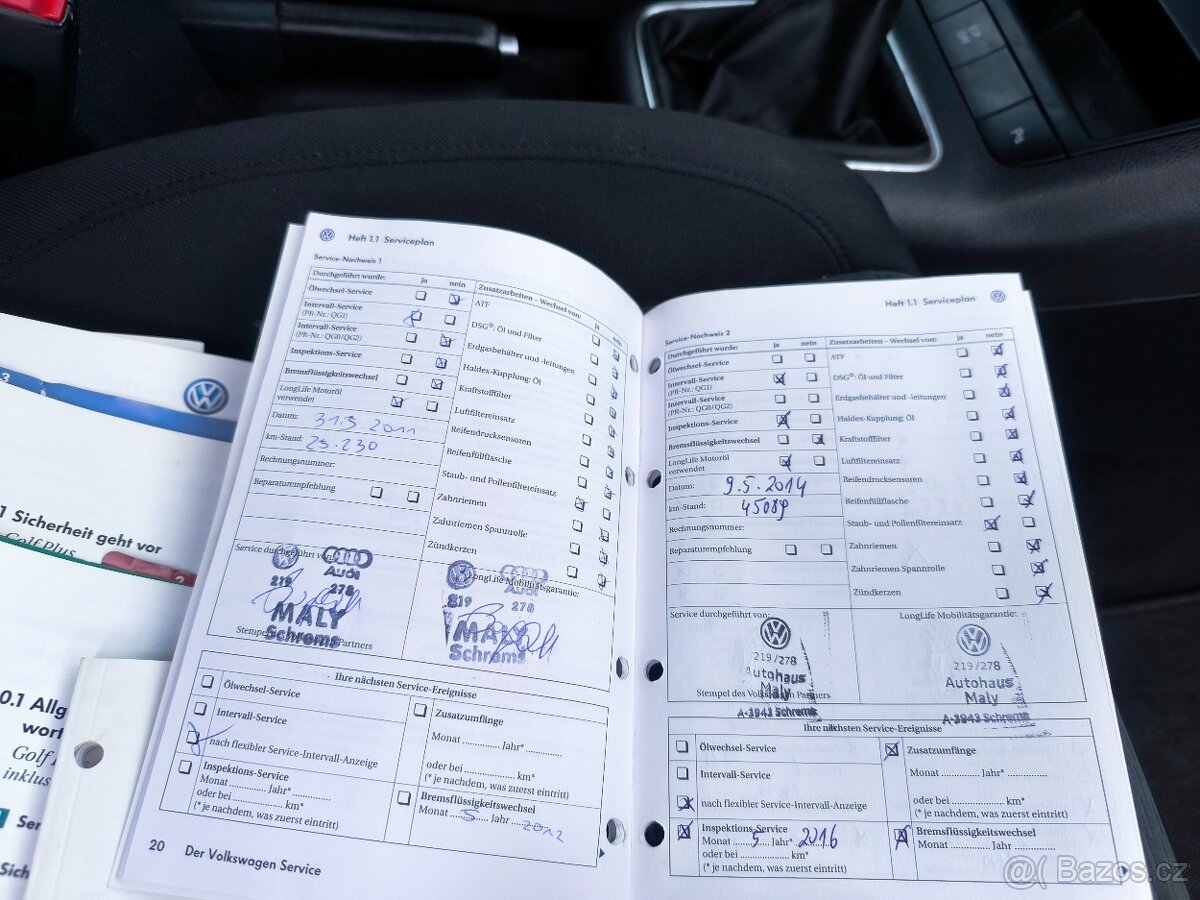 Heft 1.1 Serviceplan
Service-Nachweis 1
Durchgeführt wurde: ja nein
Ölwechsel-Service
Intervall-Service
(PR-Nr.: QG1)
Intervall-Service
(PR-Nr.: QG0/QG2)
Inspektions-Service
Bremsflüssigkeitswechsel
LongLife Motoröl
verwendet
Datum: 31.5.2011
km-Stand: 23.230
Rechnungsnummer:
Reparaturempfehlung
Zusatzarbeiten – Wechsel von: ja nein
ATF
DSG®: Öl und Filter
Erdgasbehälter und -leitungen
Haldex-Kupplung: Öl
Kraftstofffilter
Luftfiltereinsatz
Reifendrucksensoren
Reifenfüllflasche
Staub- und Pollenfiltereinsatz
Zahnriemen
Zahnriemen Spannrolle
Zündkerzen
Service durchgeführt von:
Audi
219 278
MALY
Schrems
Stempel Partners
LongLife Mobilitätsgarantie:
Audi
819 278
MALY
Schrems
Ihre nächsten Service-Ereignisse
Ölwechsel-Service
Intervall-Service
nach flexibler Service-Intervall-Anzeige
Inspektions-Service
Monat ............ Jahr* ............
oder bei ............ km*
(* je nachdem, was zuerst eintritt)
Zusatzumfänge
Monat ............ Jahr* ............
oder bei ............ km*
(* je nachdem, was zuerst eintritt)
Bremsflüssigkeitswechsel
Monat 5 Jahr 2012
20 Der Volkswagen Service
Heft 1.1 Serviceplan
Service-Nachweis 2
Durchgeführt wurde: ja nein
Ölwechsel-Service
Intervall-Service
(PR-Nr.: QG1)
Intervall-Service
(PR-Nr.: QG0/QG2)
Inspektions-Service
Bremsflüssigkeitswechsel
LongLife Motoröl
verwendet
Datum: 9.5.2014
km-Stand: 45089
Rechnungsnummer:
Reparaturempfehlung
Zusatzarbeiten – Wechsel von: ja nein
ATF
DSG®: Öl und Filter
Erdgasbehälter und -leitungen
Haldex-Kupplung: Öl
Kraftstofffilter
Luftfiltereinsatz
Reifendrucksensoren
Reifenfüllflasche
Staub- und Pollenfiltereinsatz
Zahnriemen
Zahnriemen Spannrolle
Zündkerzen
Service durchgeführt von:
219/278
Autohaus
Maly
Stempel des Volkswagen Partners
A-3943 Schrems
LongLife Mobilitätsgarantie:
219/278
Autohaus
Maly
A-3943 Schrems
Ihre nächsten Service-Ereignisse
Ölwechsel-Service
Intervall-Service
nach flexibler Service-Intervall-Anzeige
Inspektions-Service
Monat 5 Jahr* 2016
oder bei ............ km*
(* je nachdem, was zuerst eintritt)
Zusatzumfänge
Monat ............ Jahr* ............
oder bei ............ km*
(* je nachdem, was zuerst eintritt)
Bremsflüssigkeitswechsel
Monat ............ Jahr ............
3
1 Sicherheit geht vor
Golf Plus
2
0.1 Allg
wort
Golf
inklus
1 Ser
Sich
@( Bazos.cz